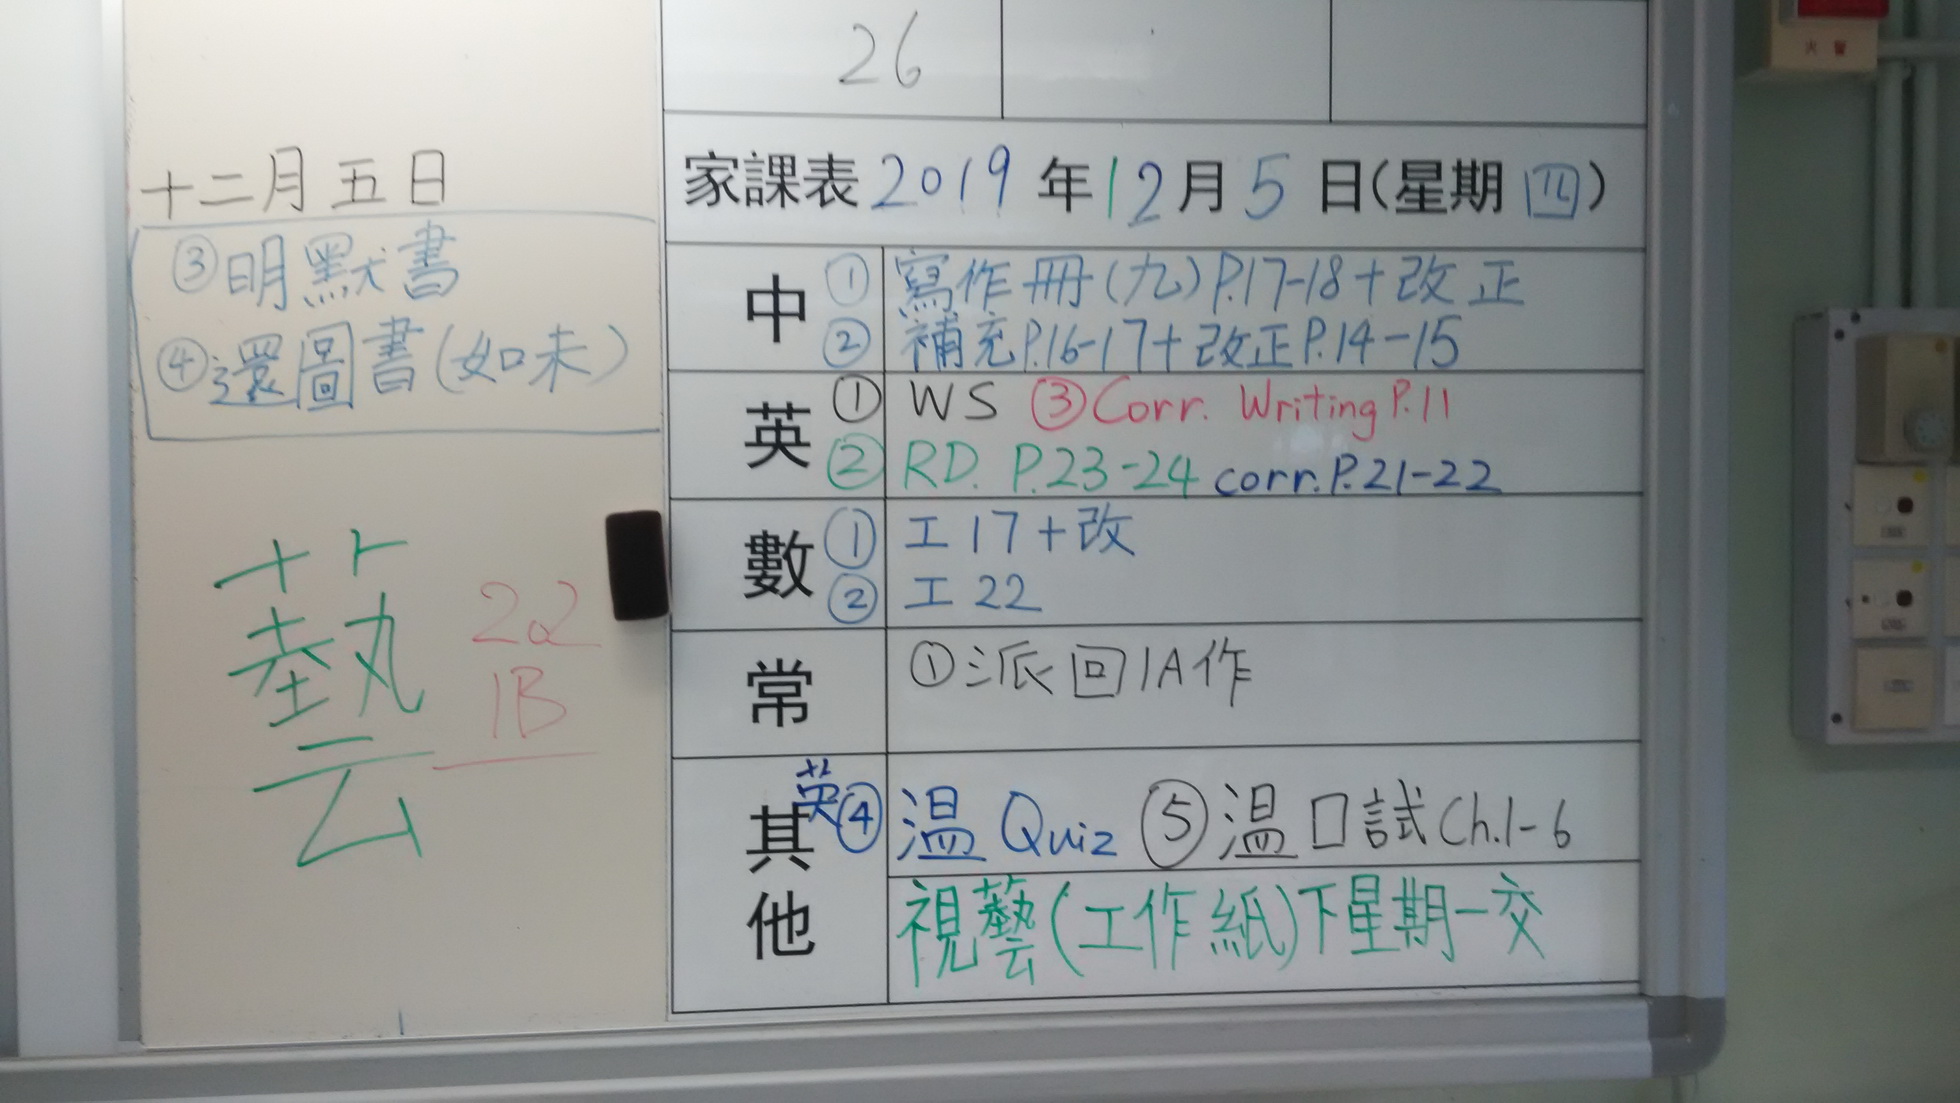 26
十二月五日
③明默書
④還圖書(如未)
藝
22
1B
家課表2019年12月5日(星期四)
中
①寫作冊(九)P.17-18+改正
②補充P.16-17+改正P.14-15
英
①WS ③Corr. Writing P.11
②RD. P.23-24 corr.P.21-22
數
①工17+改
②工22
常
①派回1A作
其他
英④溫Quiz ⑤溫口試Ch.1-6
視藝(工作紙)下星期一交
火警